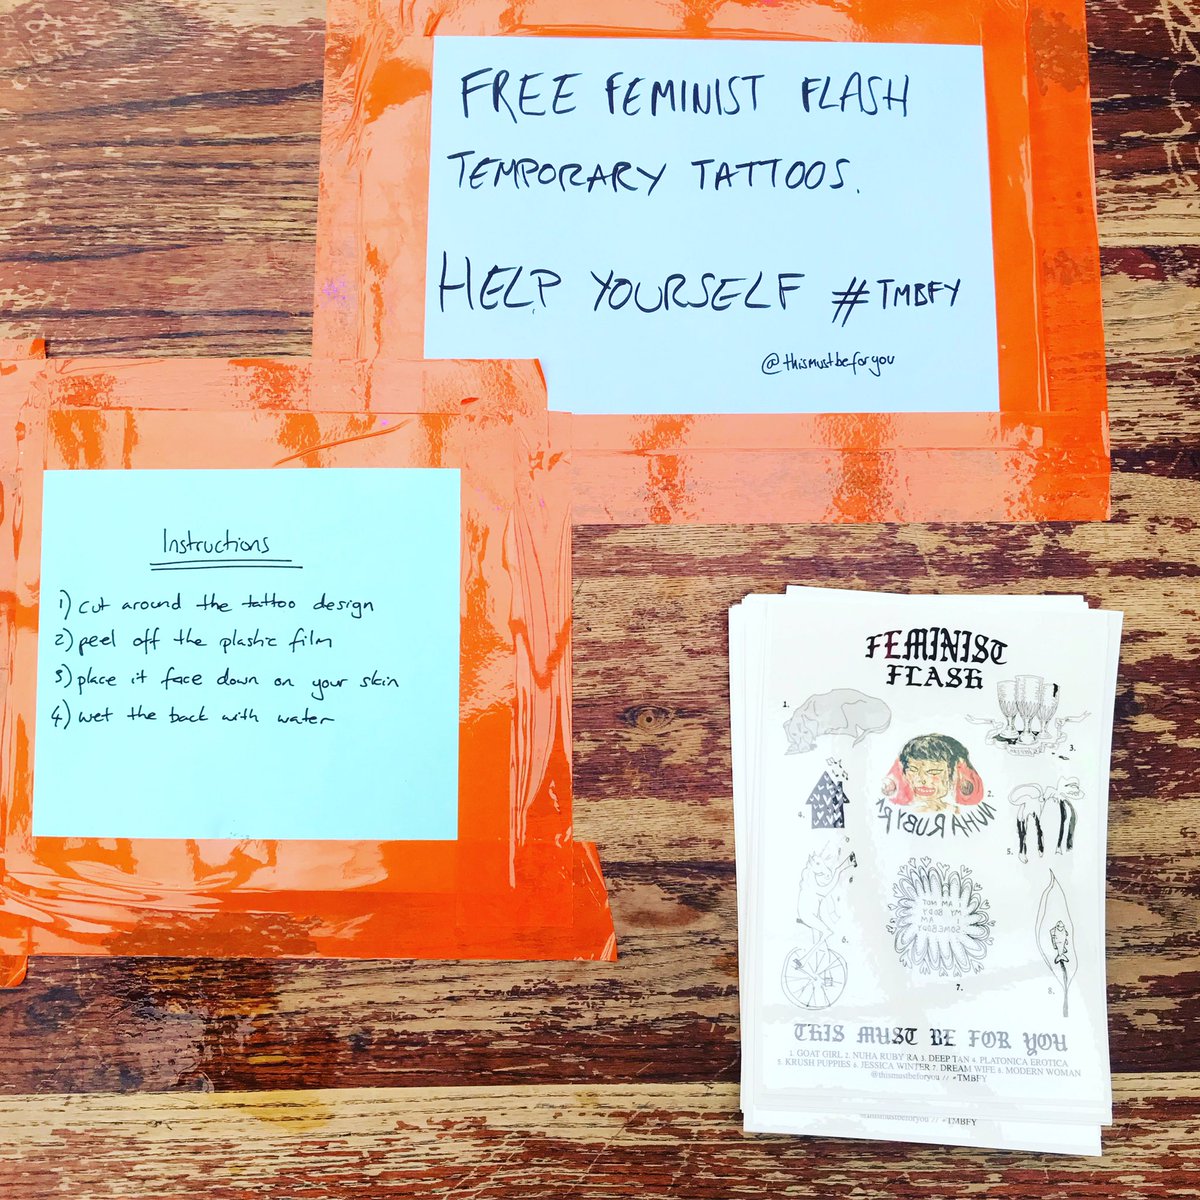 FREE FEMINIST FLASH
TEMPORARY TATTOOS.
HELP YOURSELF #TMBFY
@thismustbeforyou
Instructions
1) cut around the tattoo design
2) peel off the plastic film
3) place it face down on your skin
4) wet the back with water
FEMINIST
FLASH
1.
2.
3.
4.
5.
6.
7.
8.
NUHA RUBY RA
I AM NOT
MY BODY
I AM
SOMEBODY
THIS MUST BE FOR YOU
1. GOAT GIRL 2. NUHA RUBY RA 3. DEEP TAN 4. PLATONICA EROTICA
5. KRUSH PUPPIES 6. JESSICA WINTER 7. DREAM WIFE 8. MODERN WOMAN
@thismustbeforyou // #TMBFY
#TMBFY